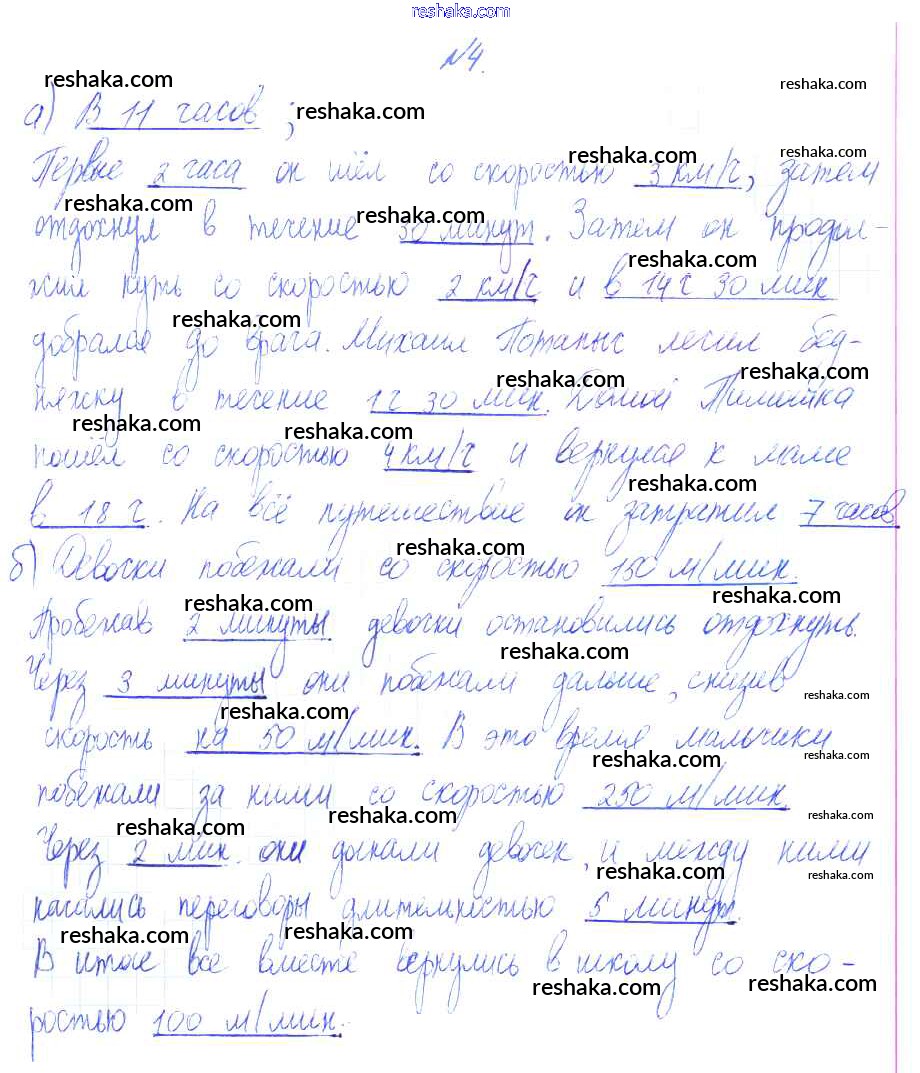 reshaka.com
№4.
reshaka.com reshaka.com
а) В 11 часов ; reshaka.com
reshaka.com reshaka.com
Первые 2 часа он шёл со скоростью 3 км/ч, затем
reshaka.com reshaka.com
отдохнул в течение 30 минут. Затем он продол-
reshaka.com
жил путь со скоростью 2 км/ч и в 14 ч 30 мин
reshaka.com
добрался до врача. Михаил Потапыч лечил бед-
reshaka.com reshaka.com
няжку в течение 1 ч 30 мин. Домой Тимошка
reshaka.com reshaka.com
пошёл со скоростью 4 км/ч и вернулся к маме
reshaka.com
в 18 ч. На всё путешествие он затратил 7 часов
reshaka.com
б) Девочки побежали со скоростью 150 м/мин.
reshaka.com reshaka.com
Пробежав 2 минуты девочки остановились отдохнуть.
reshaka.com
Через 3 минуты они побежали дальше, снизив
reshaka.com reshaka.com
скорость на 50 м/мин. В это время мальчики
reshaka.com reshaka.com
побежали за ними со скоростью 250 м/мин.
reshaka.com reshaka.com reshaka.com
Через 2 мин. они догнали девочек, и между ними
reshaka.com reshaka.com
начались переговоры длительностью 5 минут.
reshaka.com reshaka.com
В итоге все вместе вернулись в школу со ско-
reshaka.com reshaka.com
ростью 100 м/мин.